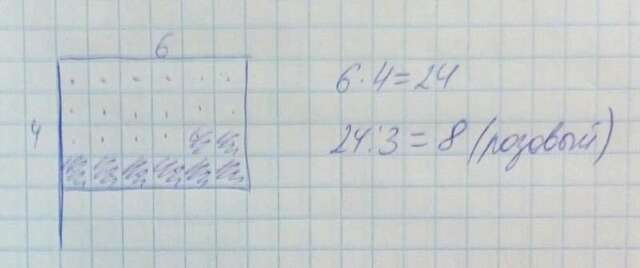 6
4
6·4=24
24:3=8 (розовый)